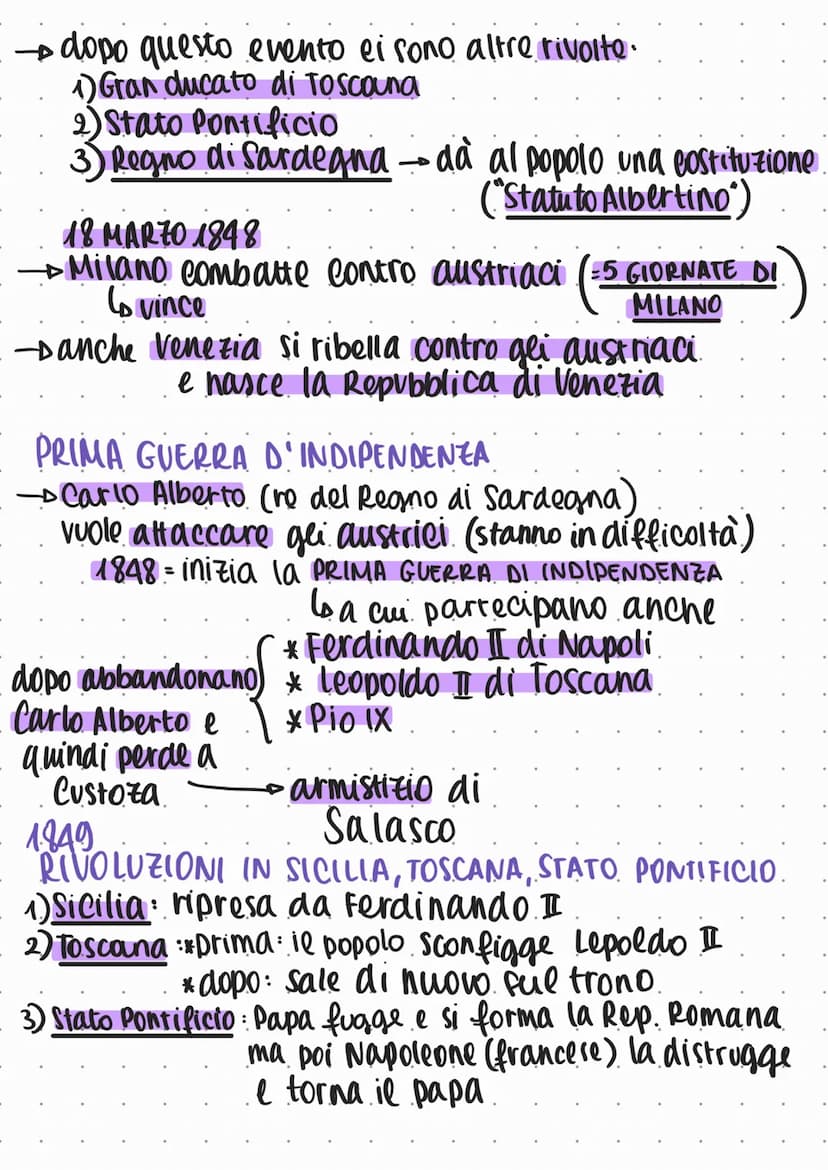 → dopo questo evento ci sono altre rivolte.
1) Gran ducato di Toscana
2) Stato Pontificio
3) Regno di Sardegna → dà al popolo una costituzione
("Statuto Albertino")
18 MARZO 1848
→ Milano combatte contro austriaci (=5 GIORNATE DI
MILANO)
↳ vince
→ anche Venezia si ribella contro gli austriaci
e nasce la Repubblica di Venezia
PRIMA GUERRA D'INDIPENDENZA
→ Carlo Alberto (re del Regno di Sardegna)
vuole attaccare gli austrici (stanno in difficoltà)
1848 = inizia la PRIMA GUERRA DI INDIPENDENZA
↳ a cui partecipano anche
* Ferdinando II di Napoli
* Leopoldo II di Toscana
* Pio IX
dopo abbandonano
Carlo Alberto e
quindi perde a
Custoza → armistizio di
Salasco
1849
RIVOLUZIONI IN SICILIA, TOSCANA, STATO PONTIFICIO
1) Sicilia: ripresa da Ferdinando II
2) Toscana: *prima: il popolo sconfigge Lepoldo II
*dopo: sale di nuovo sul trono
3) Stato Pontificio: Papa fugge e si forma la Rep. Romana
ma poi Napoleone (francese) la distrugge
e torna il papa